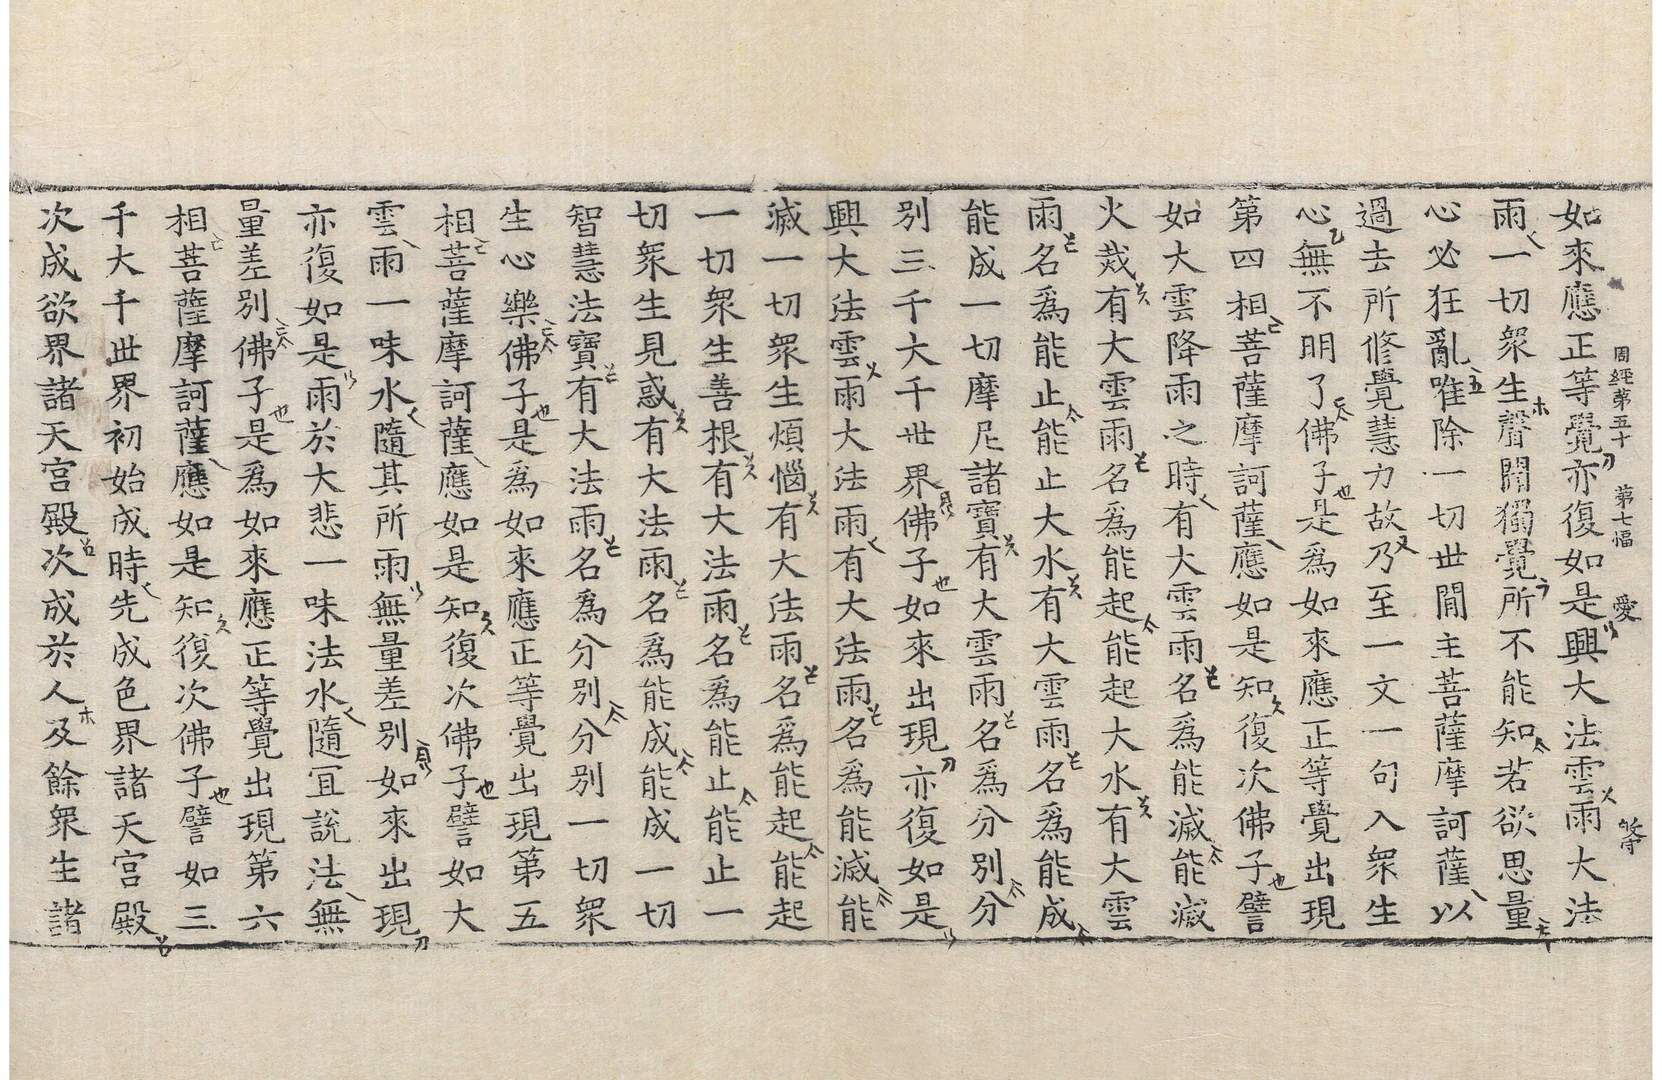 周經第五十 第七幅 愛 等
如來應正等覺亦復如是興大法雲雨大法
雨一切衆生聲聞獨覺所不能知若欲思量
心必狂亂唯除一切世間主菩薩摩訶薩以
過去所修覺慧力故乃至一文一句入衆生
心無不明了佛子是爲如來應正等覺出現
第四相菩薩摩訶薩應如是知復次佛子譬
如大雲降雨之時有大雲雨名爲能滅能滅
火烖有大雲雨名爲能起能起大水有大雲
雨名爲能止能止大水有大雲雨名爲能成
能成一切摩尼諸寶有大雲雨名爲分別分
別三千大千世界佛子如來出現亦復如是
興大法雲雨大法雨有大法雨名爲能滅能
滅一切衆生煩惱有大法雨名爲能起能起
一切衆生善根有大法雨名爲能止能止一
切衆生見惑有大法雨名爲能成能成一切
智慧法寶有大法雨名爲分別分別一切衆
生心樂佛子是爲如來應正等覺出現第五
相菩薩摩訶薩應如是知復次佛子譬如大
雲雨一味水隨其所雨無量差別如來出現
亦復如是雨於大悲一味法水隨宜說法無
量差別佛子是爲如來應正等覺出現第六
相菩薩摩訶薩應如是知復次佛子譬如三
千大千世界初始成時先成色界諸天宮殿
次成欲界諸天宮殿次成於人及餘衆生諸